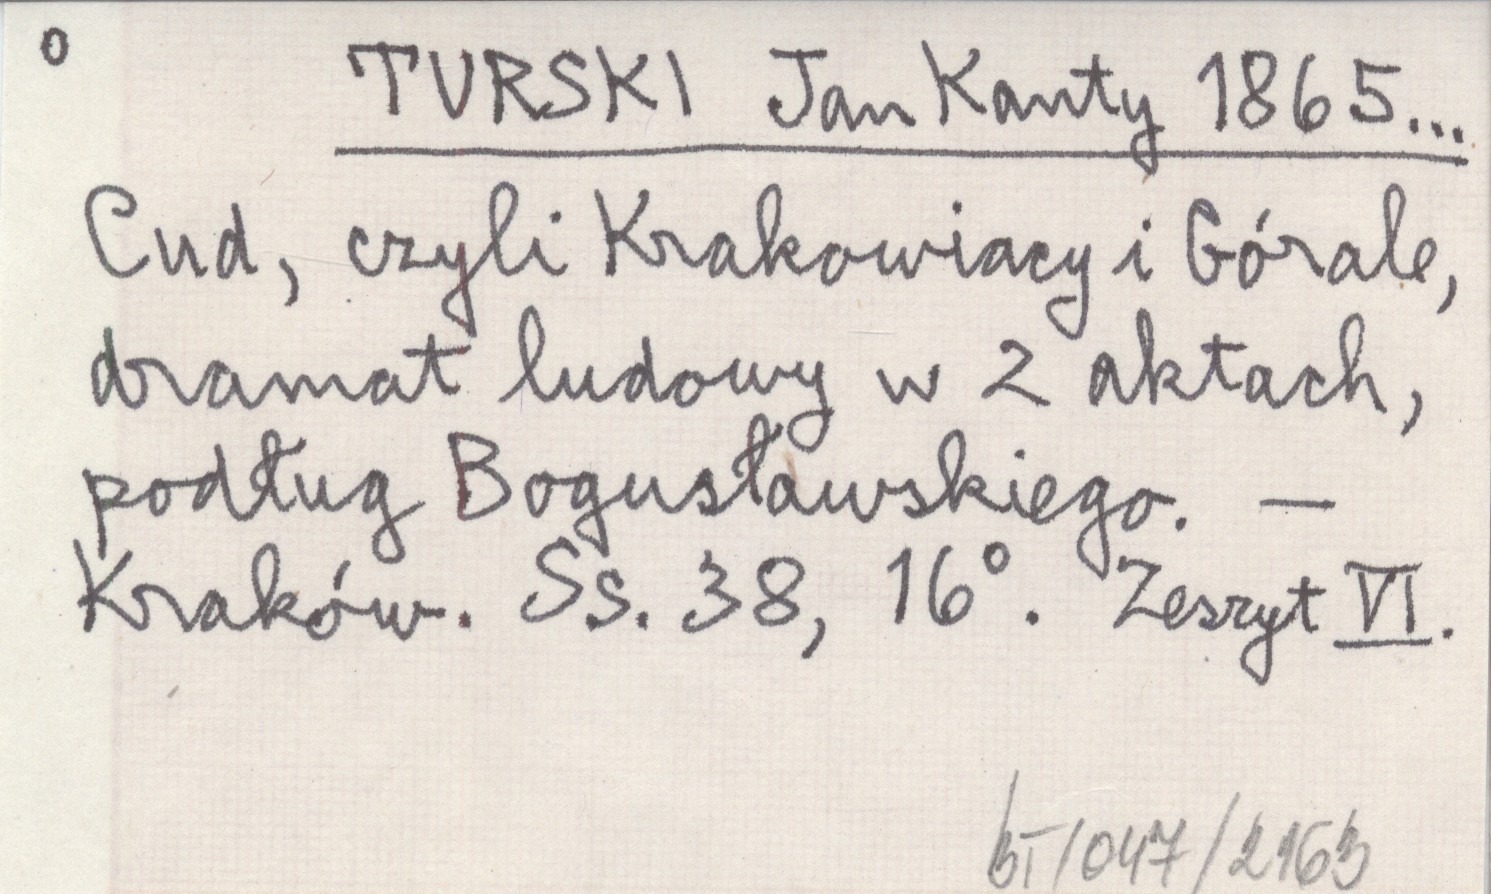 o
TURSKI Jan Kanty 1865...
Cud, czyli Krakowiacy i Górale,
dramat ludowy w 2 aktach,
podług Bogusławskiego. —
Kraków. Ss. 38, 16°. Zeszyt VI.
bT/047/2163